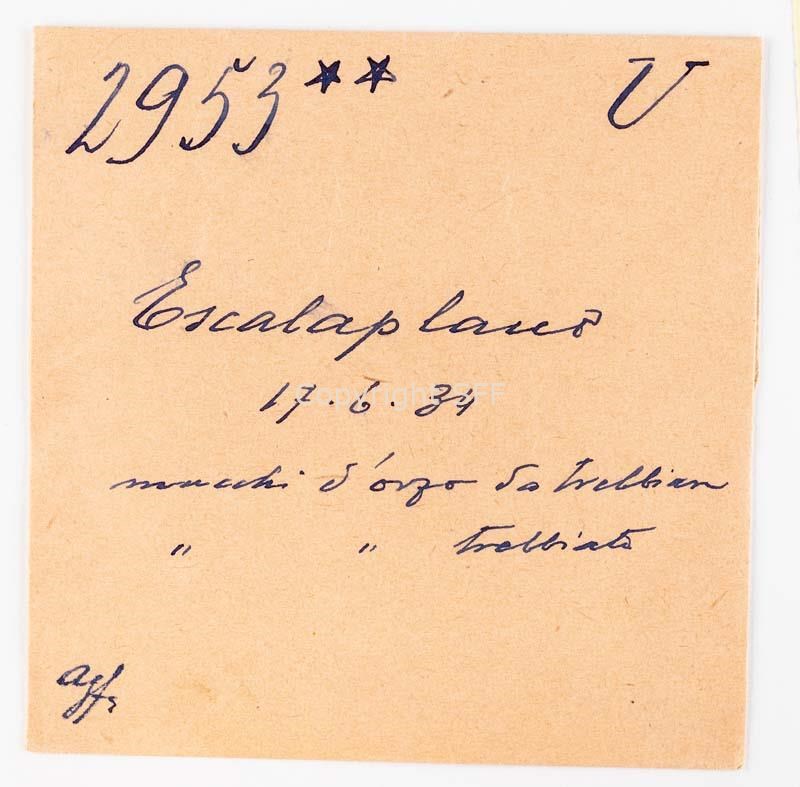 2953** V
Escalaplano
17.6.34
mucchi d'orzo da trebbiare
" " trebbiato
agfa